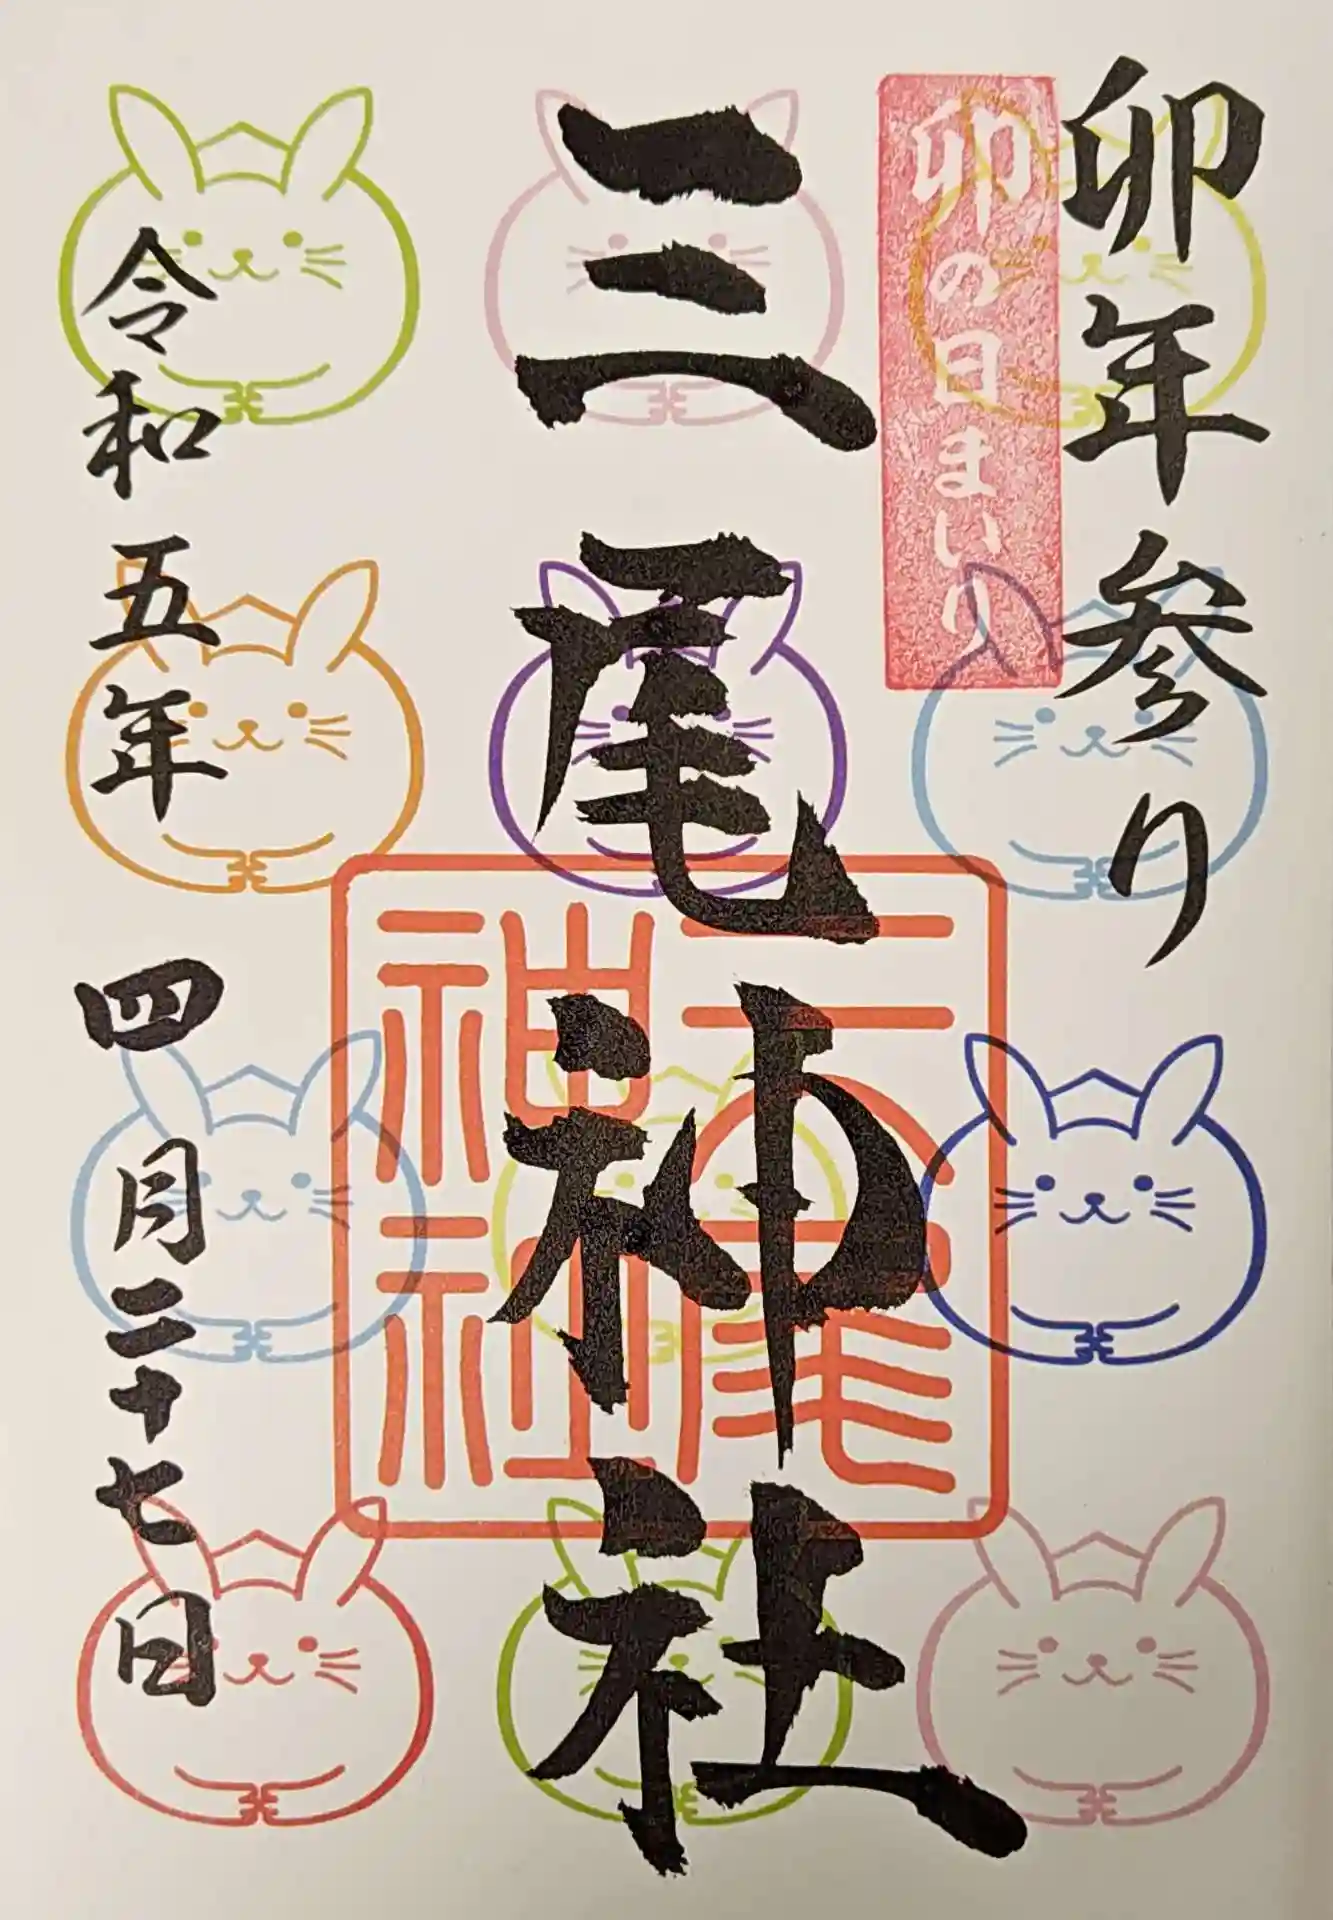 卯年参り
卯の日まいり
三尾神社
三尾
神社
令和五年四月二十七日